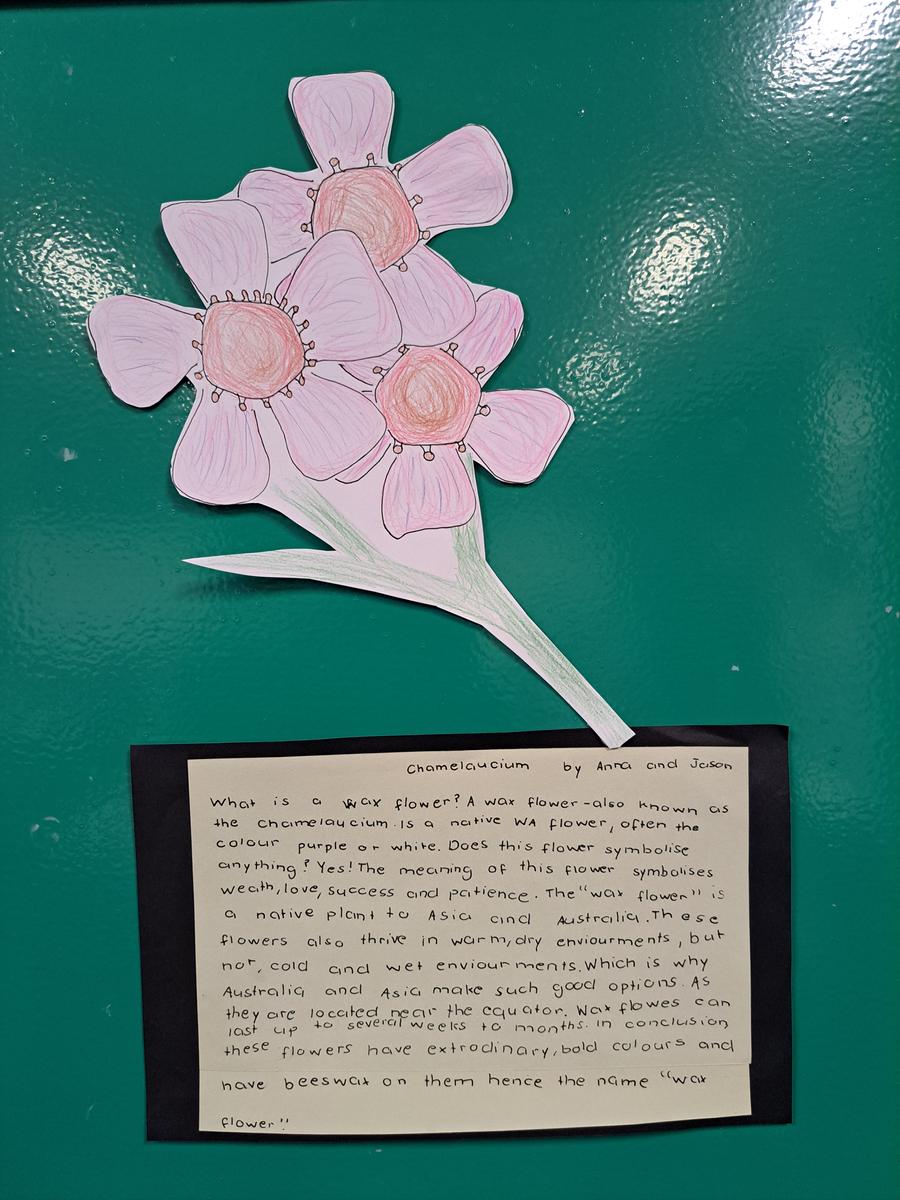 Chamelaucium by Anna and Jason
What is a wax flower? A wax flower -also known as
the chamelaucium. Is a native WA flower, often the
colour purple or white. Does this flower symbolise
anything? Yes! The meaning of this flower symbolises
wealth, love, success and patience. The "wax flower" is
a native plant to Asia and Australia. These
flowers also thrive in warm, dry enviourments, but
not, cold and wet enviourments. Which is why
Australia and Asia make such good options. As
they are located near the equator. Wax flowes can
last up to several weeks to months. In conclusion
these flowers have extrodinary, bold colours and
have beeswax on them hence the name "wax
flower"